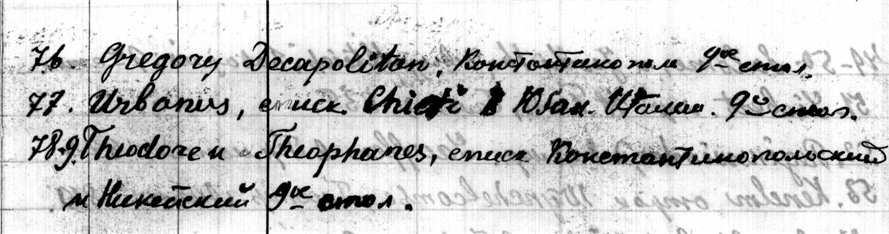 76. Gregory Decapolitan, Константинополь 9ое стол.
77. Urbanus, еписк. Chieti в Южн. Италии. 9ое стол.
78.9. Theodore и Theophanes, еписк Константинопольский
и Никейский 9ое стол.